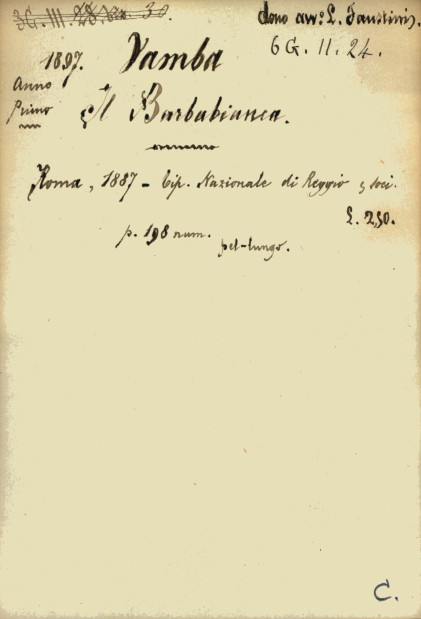 dono avv. L. Faustini.
6 G. II. 24.
1897. Vamba
Anno
Primo
Il Barbabianca.
Roma, 1887 - Tip. Nazionale di Reggio e soci.
L. 2,50.
p. 198 num.
pel-lungo.
C.